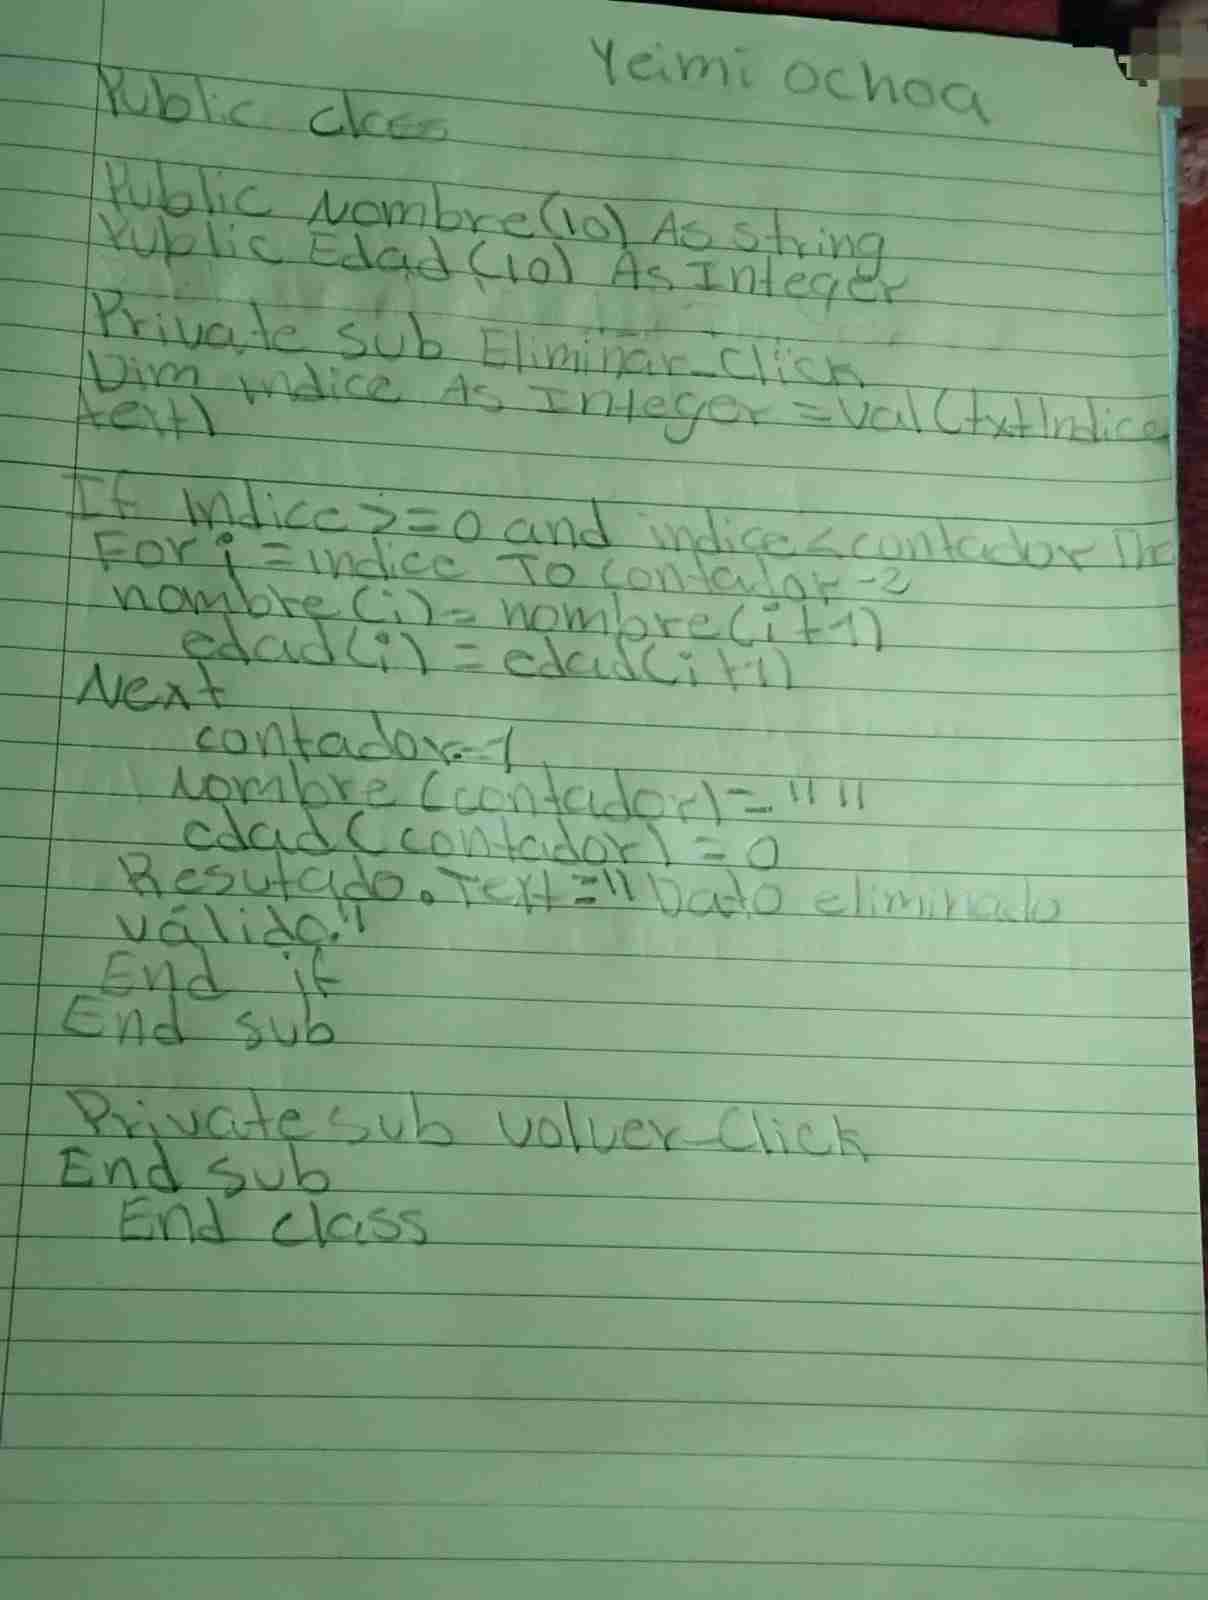 Yeimi Ochoa
Public class
Public Nombre(10) As string
Public Edad(10) As Integer
Private sub Eliminar_Click
Dim indice As Integer = val(txtIndice
text)
If indice >= 0 and indice < contador The
For i = indice To contador -2
nombre(i) = nombre(i+1)
edad(i) = edad(i+1)
Next
contador -= 1
Nombre (contador) = " "
edad (contador) = 0
Resutado.Text = "Dato eliminado
válido."
End if
End sub
Private sub volver_Click
End sub
End class